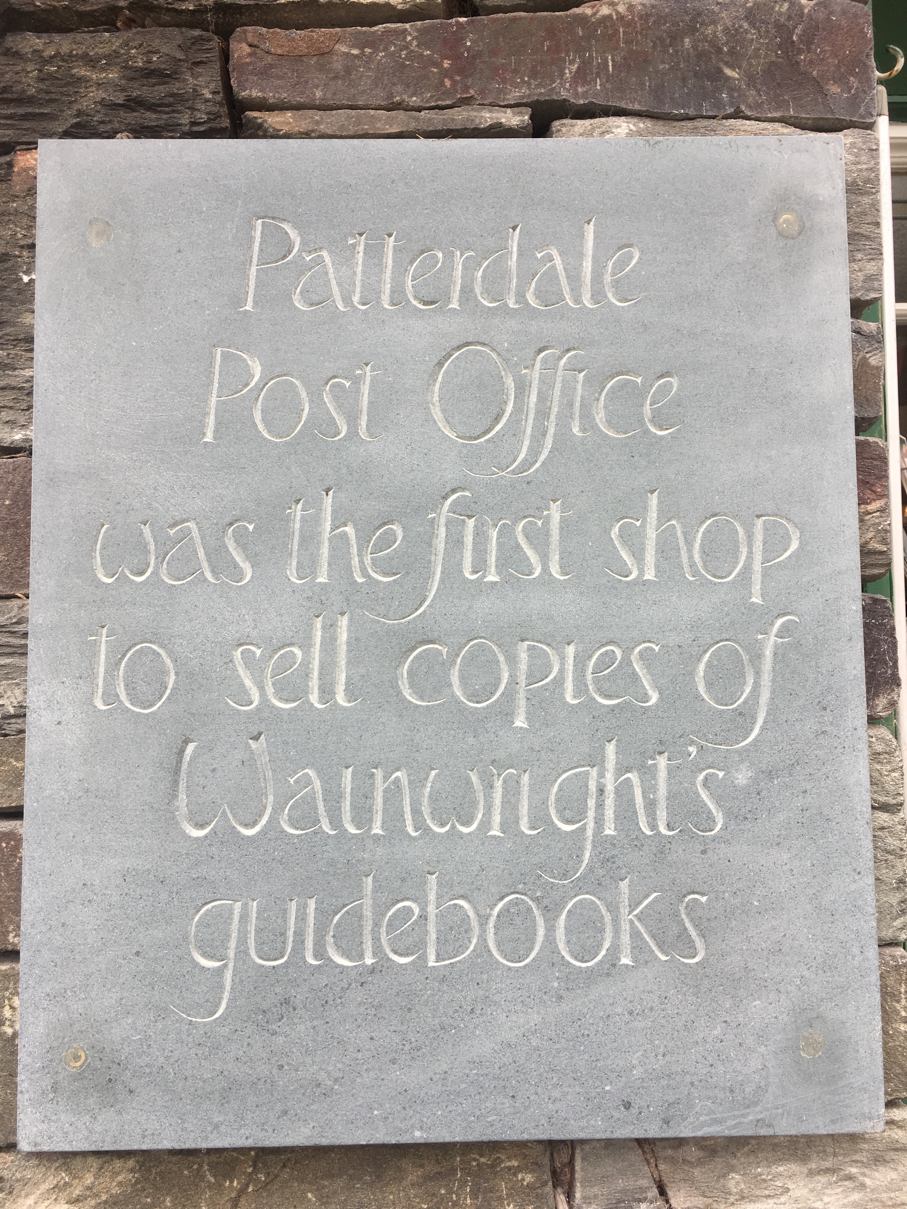 Patterdale
Post Office
was the first shop
to sell copies of
Wainwright's
guidebooks